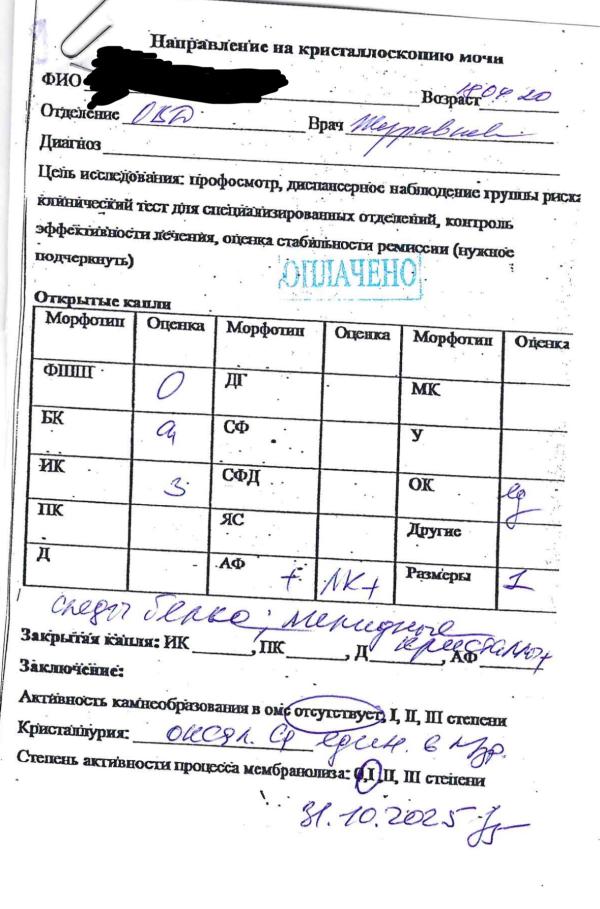 Направление на кристаллоскопию мочи
ФИО
Возраст 18.04.20
Отделение ОВД Врач
Диагноз
Цель исследования: профосмотр, диспансерное наблюдение группы риска
клинический тест для специализированных отделений, контроль
эффективности лечения, оценка стабильности ремиссии (нужное
подчеркнуть)
ОПЛАЧЕНО
Открытые капли
Морфотип Оценка Морфотип Оценка Морфотип Оценка
0 ДГ МК
БК СФ У
ИК 3 СФД ОК ед
ПК ЯС Другие
Д АФ + ЛК+ Размеры 1
следы белка; липидные
кристаллы+
Закрытая капля: ИК, ПК, Д, АФ
Заключение:
Активность камнеобразования в омс отсутствует, I, II, III степени
Кристаллурия: оксал. Ca един. в п/зр.
Степень активности процесса мембранолиза: 0,I ,II, III степени
31.10.2025